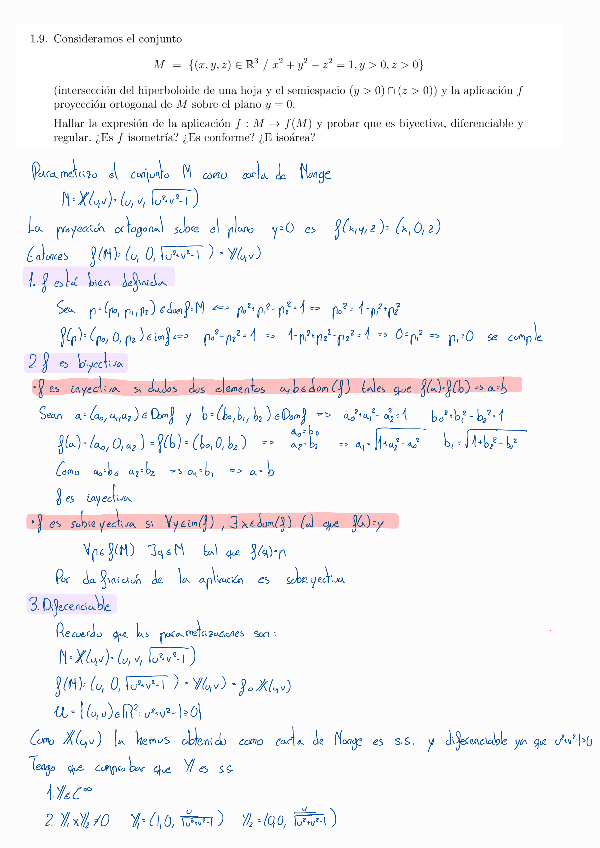 1.9. Consideramos el conjunto
M = {(x, y, z) ∈ ℝ³ / x² + y² − z² = 1, y > 0, z > 0}
(intersección del hiperboloide de una hoja y el semiespacio (y > 0) ∩ (z > 0)) y la aplicación f
proyección ortogonal de M sobre el plano y = 0.
Hallar la expresión de la aplicación f : M → f(M) y probar que es biyectiva, diferenciable y
regular. ¿Es f isometría? ¿Es conforme? ¿E isoárea?
Parametrizo el conjunto M como carta de Monge
M = X(u,v) = (u, v, √(u²+v²-1))
La proyección ortogonal sobre el plano y=0 es f(x,y,z) = (x, 0, z)
Entonces f(M) = (u, 0, √(u²+v²-1)) = Y(u,v)
1. f está bien definida
Sea p = (p₀, p₁, p₂) ∈ dom f = M ⟺ p₀²+p₁²-p₂² = 1 ⟹ p₀² = 1-p₁²+p₂²
f(p) = (p₀, 0, p₂) ∈ im f ⟺ p₀²-p₂² = 1 ⟹ 1-p₁²+p₂²-p₂² = 1 ⟹ 0 = p₁² ⟹ p₁ = 0 se cumple
2. f es biyectiva
· f es inyectiva si dados dos elementos a, b ∈ dom(f) tales que f(a) = f(b) ⟹ a = b
Sean a = (a₀, a₁, a₂) ∈ Dom f y b = (b₀, b₁, b₂) ∈ Dom f ⟹ a₀²+a₁²-a₂² = 1 b₀²+b₁²-b₂² = 1
f(a) = (a₀, 0, a₂) = f(b) = (b₀, 0, b₂) ⟹ a₀ = b₀ a₂ = b₂ ⟹ a₁ = √(1+a₂²-a₀²) b₁ = √(1+b₂²-b₀²)
Como a₀ = b₀ a₂ = b₂ ⟹ a₁ = b₁ ⟹ a = b
f es inyectiva
· f es sobreyectiva si ∀y ∈ im(f), ∃x ∈ dom(f) tal que f(x) = y
∀p ∈ f(M) ∃q ∈ M tal que f(q) = p
Por definición de la aplicación es sobreyectiva
3. Diferenciable
Recuerdo que las parametrizaciones son:
M = X(u,v) = (u, v, √(u²+v²-1))
f(M) = (u, 0, √(u²+v²-1)) = Y(u,v) = f∘X(u,v)
U = {(u,v) ∈ ℝ²: u²+v²-1 > 0}
Como X(u,v) la hemos obtenido como carta de Monge es s.s. y diferenciable ya que u²+v²-1>0
Tengo que comprobar que Y es s.s
1. Y ∈ C^∞
2. Y₁ x Y₂ ≠ 0 Y₁ = (1, 0, u/√(u²+v²-1)) Y₂ = (0, 0, v/√(u²+v²-1))